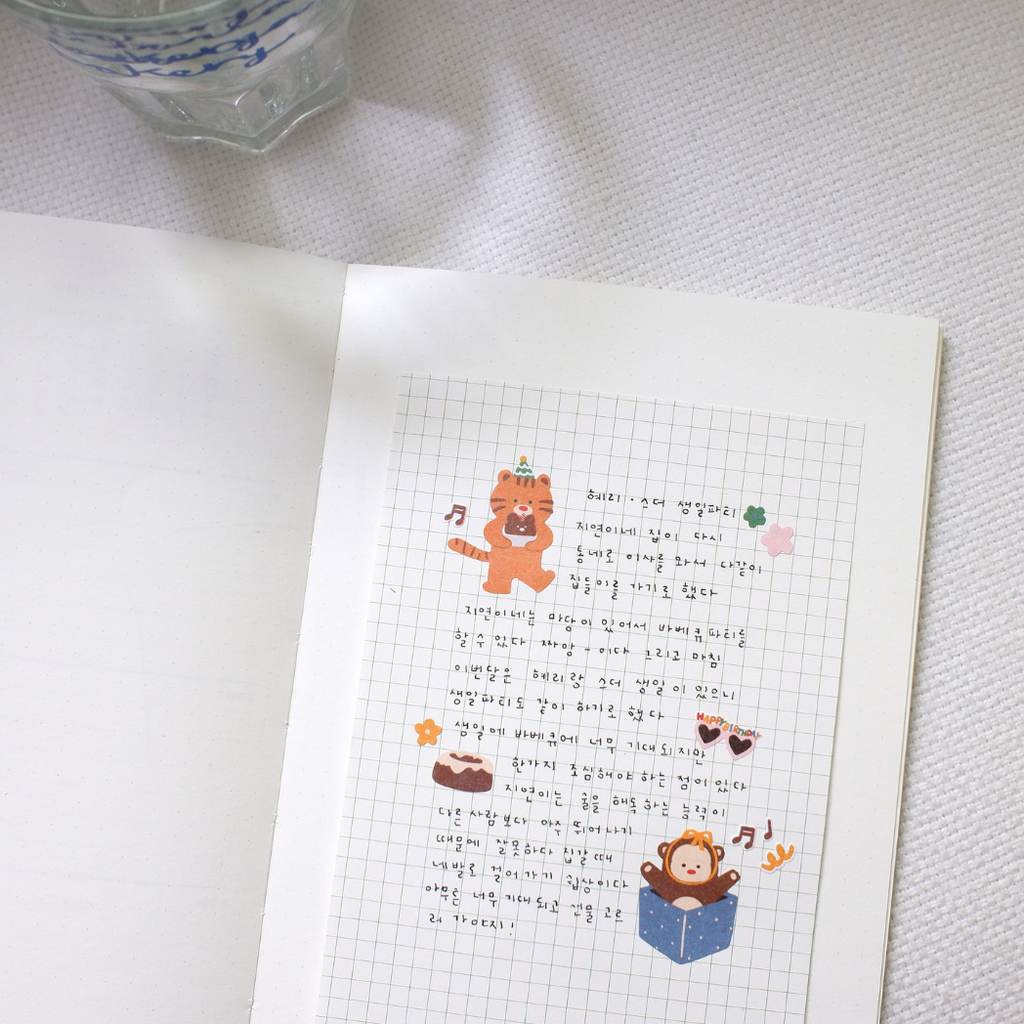 bakery
혜리·쏘더 생일파티
지연이네 집이 다시
동네로 이사를 와서 다같이
집들이를 가기로 했다
지연이네는 마당이 있어서 바베큐파티를
할 수 있다 짜앙-이다 그리고 마침
이번달은 혜리랑 쏘더 생일이 있으니
생일파티도 같이 하기로 했다
HAPPY BIRTHDAY
생일에 바베큐에 너무 기대되지만
한가지 조심해야 하는 점이 있다
지연이는 술을 해독하는 능력이
다른 사람보다 아주 뛰어나기
때문에 잘못하다 집갈때
네발로 걸어가기 쉽상이다
아무튼 너무 기대되고 선물 고르
러 가야지!